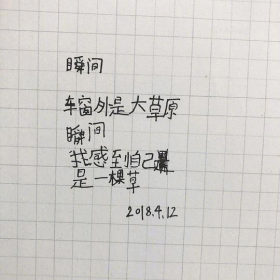 瞬间
车窗外是大草原
瞬间
我感到自己
是一棵草
2018.4.12